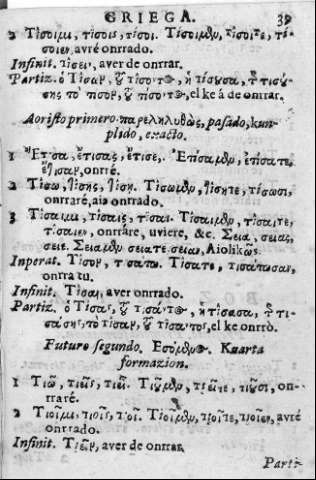 GRIEGA. 39
2 Τίσοιμι, τίσοις, τίσοι. Τίσοιμεν, τίσοιτε, τί-
σοιεν, avré onrrado.
Infinit. τίσειν, aver de onrrar.
Partiz. ὁ Τίσων, τοῦ τίσοντος, ἡ τίσουσα, τῆς τισού-
σης τὸ τίσον, τοῦ τίσοντος, el ke á de onrrar.
Aoristo primero παρεληλυθὼς, pasado, kun-
plido, exacto.
1 Ἔτισα, ἔτισας, ἔτισε. Ἐτίσαμεν, ἐτίσατε,
ἔτισαν, onrré.
2 Τίσω, τίσῃς, τίσῃ. Τίσωμεν, τίσητε, τίσωσι,
onrraré, aia onrrado.
3 Τίσαιμι, τίσαις, τίσαι. Τίσαιμεν, τίσαιτε,
τίσαιεν, onrrare, uviere, &c. Σεια, σειας,
σειε. Σειαμεν σειατε σειαν, Αἰολικῶς.
Inperat. Τίσον, τισάτω. Τίσατε, τισάτωσαν,
onrra tu.
Infinit. Τίσαι, aver onrrado.
Partiz. ὁ Τίσας, τοῦ τίσαντος, ἡ τίσασα, τῆς τι-
σάσης, τὸ τίσαν, τοῦ τίσαντος, el ke onrró.
Futuro segundo. Ἐσόμενος. Kuarta
formazion.
1 Τιῶ, τιεῖς, τιεῖ. Τιοῦμεν, τιεῖτε, τιοῦσι, on-
rraré.
2 Τιοῖμι, τιοῖς, τιοῖ. Τιοῖμεν, τιοῖτε, τιοῖεν, avré
onrrado.
Infinit. Τιεῖν, aver de onrrar.
Parti-